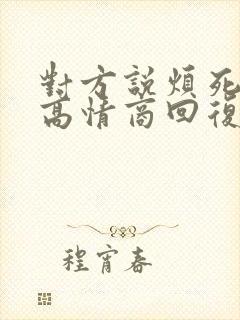 對方説煩死
高情商回復
程宵春